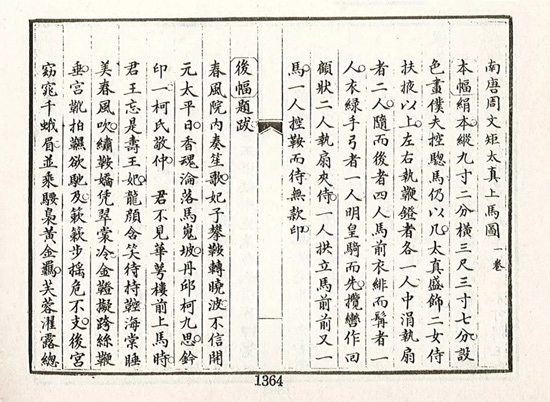 南唐周文矩太真上馬圖一卷
本幅絹本縱九寸二分橫三尺三寸七分設
色畫僕夫控驄馬仍以几太真盛飾二女侍
扶掖以上左右執鞭鐙者各一人中涓執扇
者二人隨而後者四人馬前衣緋而髯者一
人衣綠手弓者一人明皇騎而先攬轡作回
顧狀二人執扇夾侍一人拱立馬前前又一
馬一人控鞍而待無款印
後幅題跋
春風院內奏笙歌妃子攀鞍轉曉波不信開
元太平日香魂淪落馬嵬坡丹邱柯九思鈐
印一柯氏敬仲 君不見華萼樓前上馬時
君王忘是壽王妃龍顏含笑待持鞚海棠睡
美春風吹繡鞍嬌凭翠裳冷金鞚擬跨絲鞭
垂宮靴拍飆欲馳及蔌蔌步搖危不支後宮
窈窕千蛾眉並乘騕褭黃金羈芙蓉濯露總
1364